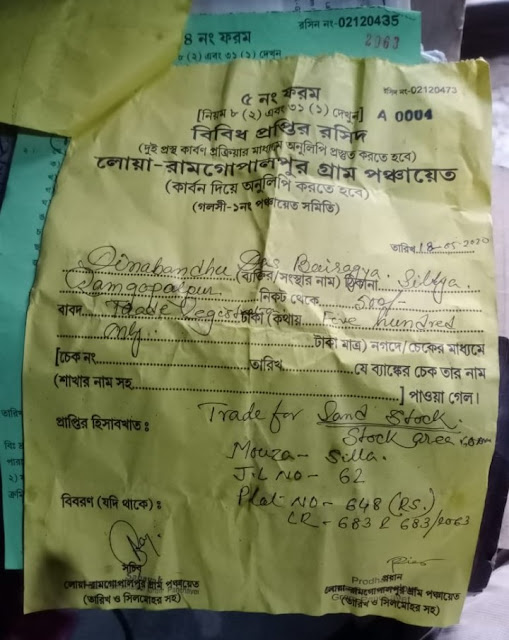 রসিদ নং-02120435
৪ নং ফরম
2063
৮ (২) এবং ৩১ (১) দেখুন
রসিদ নং-02120473
৫ নং ফরম
[নিয়ম ৮ (২) এবং ৩১ (১) দেখুন] A 0004
বিবিধ প্রাপ্তির রসিদ
(দুই প্রস্থ কার্বণ প্রক্রিয়ার মাধ্যমে অনুলিপি প্রস্তুত করতে হবে)
লোয়া-রামগোপালপুর গ্রাম পঞ্চায়েত
(কার্বন দিয়ে অনুলিপি করতে হবে)
(গলসী-১নং পঞ্চায়েত সমিতি)
তারিখ 18-05-2020
Dinabandhu Das Bairagya. (ব্যক্তির/সংস্থার নাম) ঠিকানা
Ramgopalpur নিকট থেকে 500/-
বাবদ Trade টাকা (কথায়) Five hundred
only টাকা মাত্র) নগদে/চেকের মাধ্যমে
[চেক নং তারিখ যে ব্যাঙ্কের চেক তার নাম
(শাখার নাম সহ ] পাওয়া গেল।
প্রাপ্তির হিসাবখাত : Trade for Sand Stock.
Stock area
Mouza- Silla.
J.L NO- 62
বিবরণ (যদি থাকে) : Plot NO- 648 (RS.)
LR- 683 & 683/2063
সচিব
লোয়া-রামগোপালপুর গ্রাম পঞ্চায়েত
(তারিখ ও সিলমোহর সহ)
প্রধান
লোয়া-রামগোপালপুর গ্রাম পঞ্চায়েত
(তারিখ ও সিলমোহর সহ)